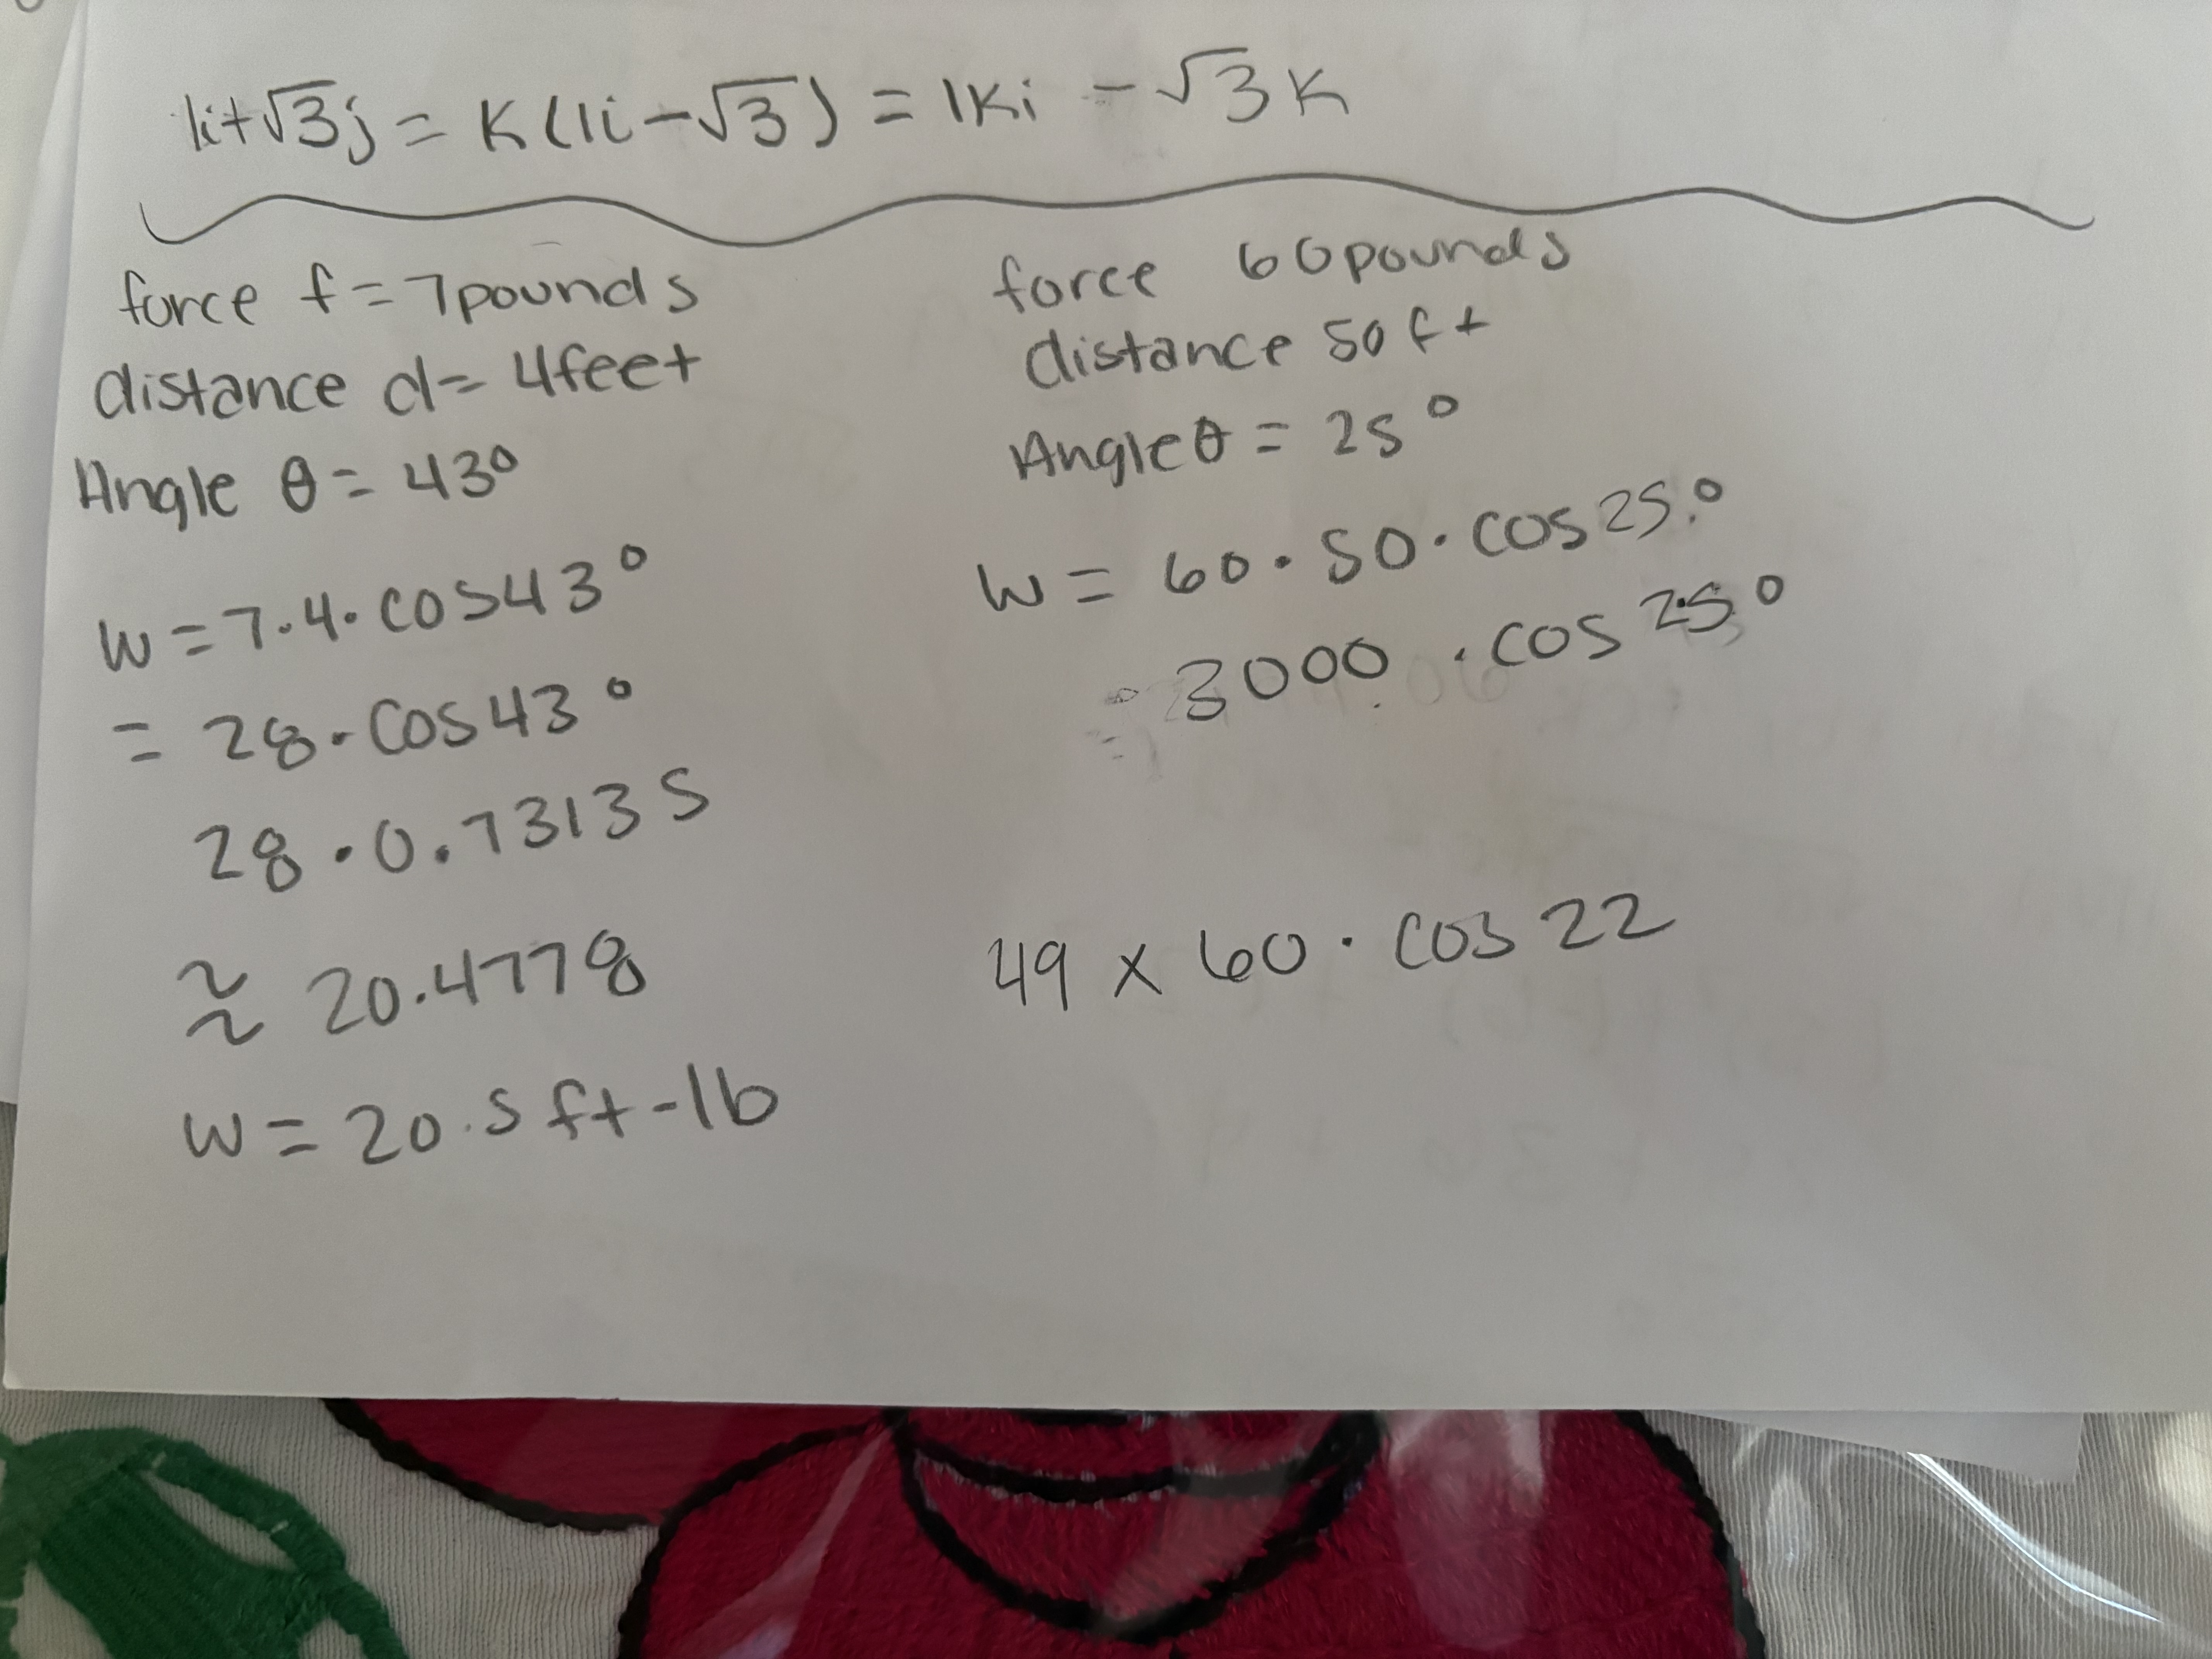 1i+√3j = K(1i-√3) = 1Ki - √3K
force f = 7pounds
distance d = 4feet
Angle θ = 43°
W = 7·4·cos43°
= 28·cos43°
28·0.73135
≈ 20.4778
W = 20.5 ft-lb
force 60pounds
distance 50ft
Angle θ = 25°
W = 60·50·cos25°
= 3000·cos25°
49 x 60·cos22